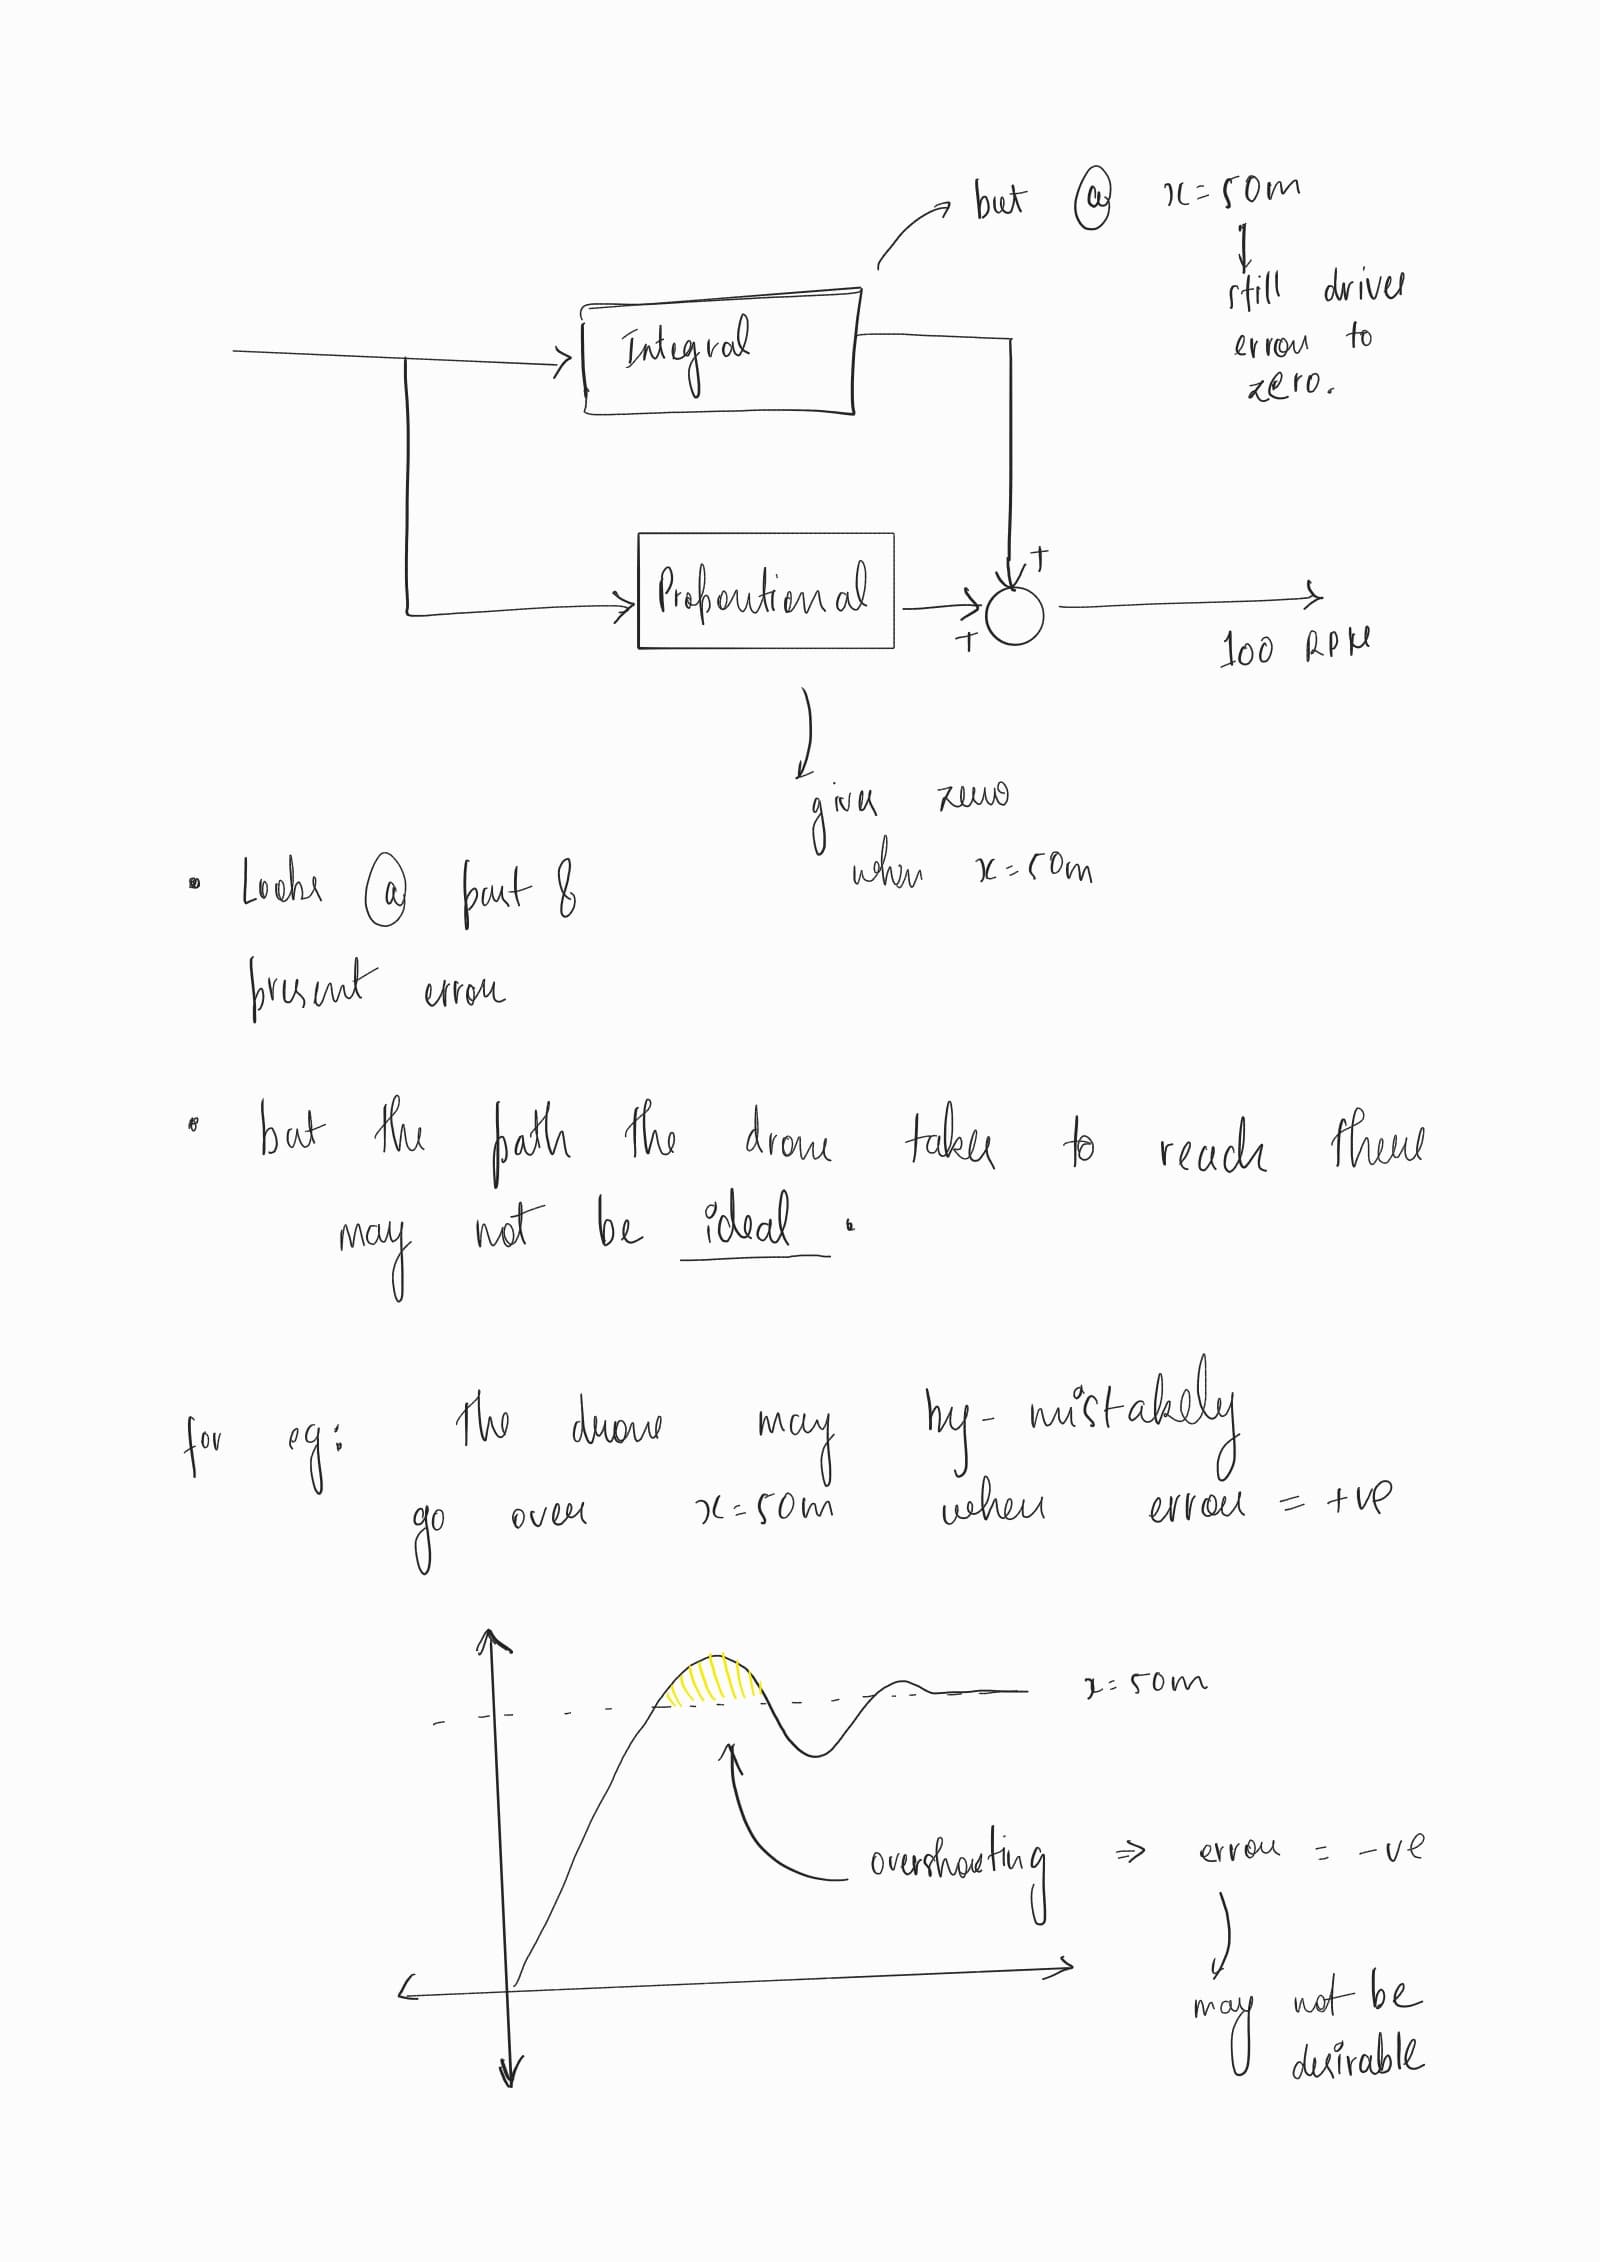 but @ x=50m
still drives
error to
zero.
Integral
+
Proportional
+
100 RPM
gives zero
when x=50m
• Looks @ past &
present error
• but the path the drone takes to reach there
may not be ideal.
for eg: the drone may by-mistakely
go over x=50m when error = +ve
x=50m
overshooting ⇒ error = -ve
may not be
desirable